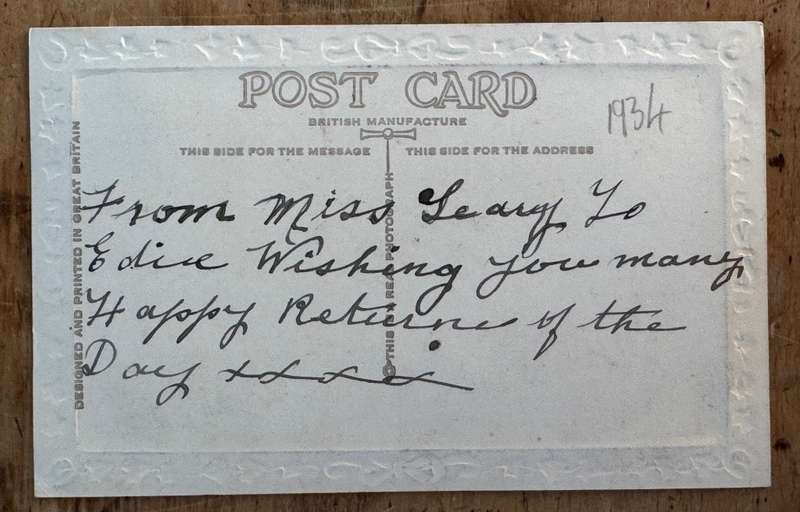 POST CARD
1934
BRITISH MANUFACTURE
THIS SIDE FOR THE MESSAGE
THIS SIDE FOR THE ADDRESS
DESIGNED AND PRINTED IN GREAT BRITAIN
THIS IS A REAL PHOTOGRAPH
From Miss Leary To
Edie Wishing you many
Happy Returns of the
Day xxxx